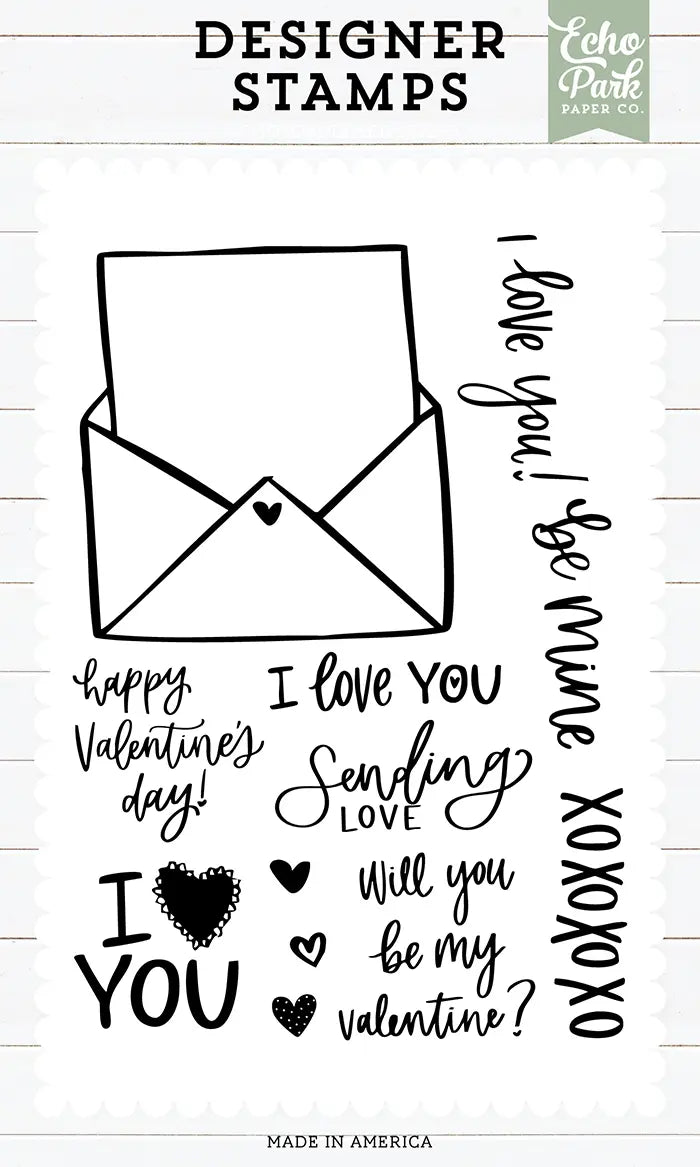 DESIGNER
STAMPS
Echo
Park
PAPER CO.
I love you!
be mine
XOXOXOXO
happy
Valentine's
day!
I love YOU
Sending
LOVE
I
YOU
Will you
be my
valentine?
MADE IN AMERICA